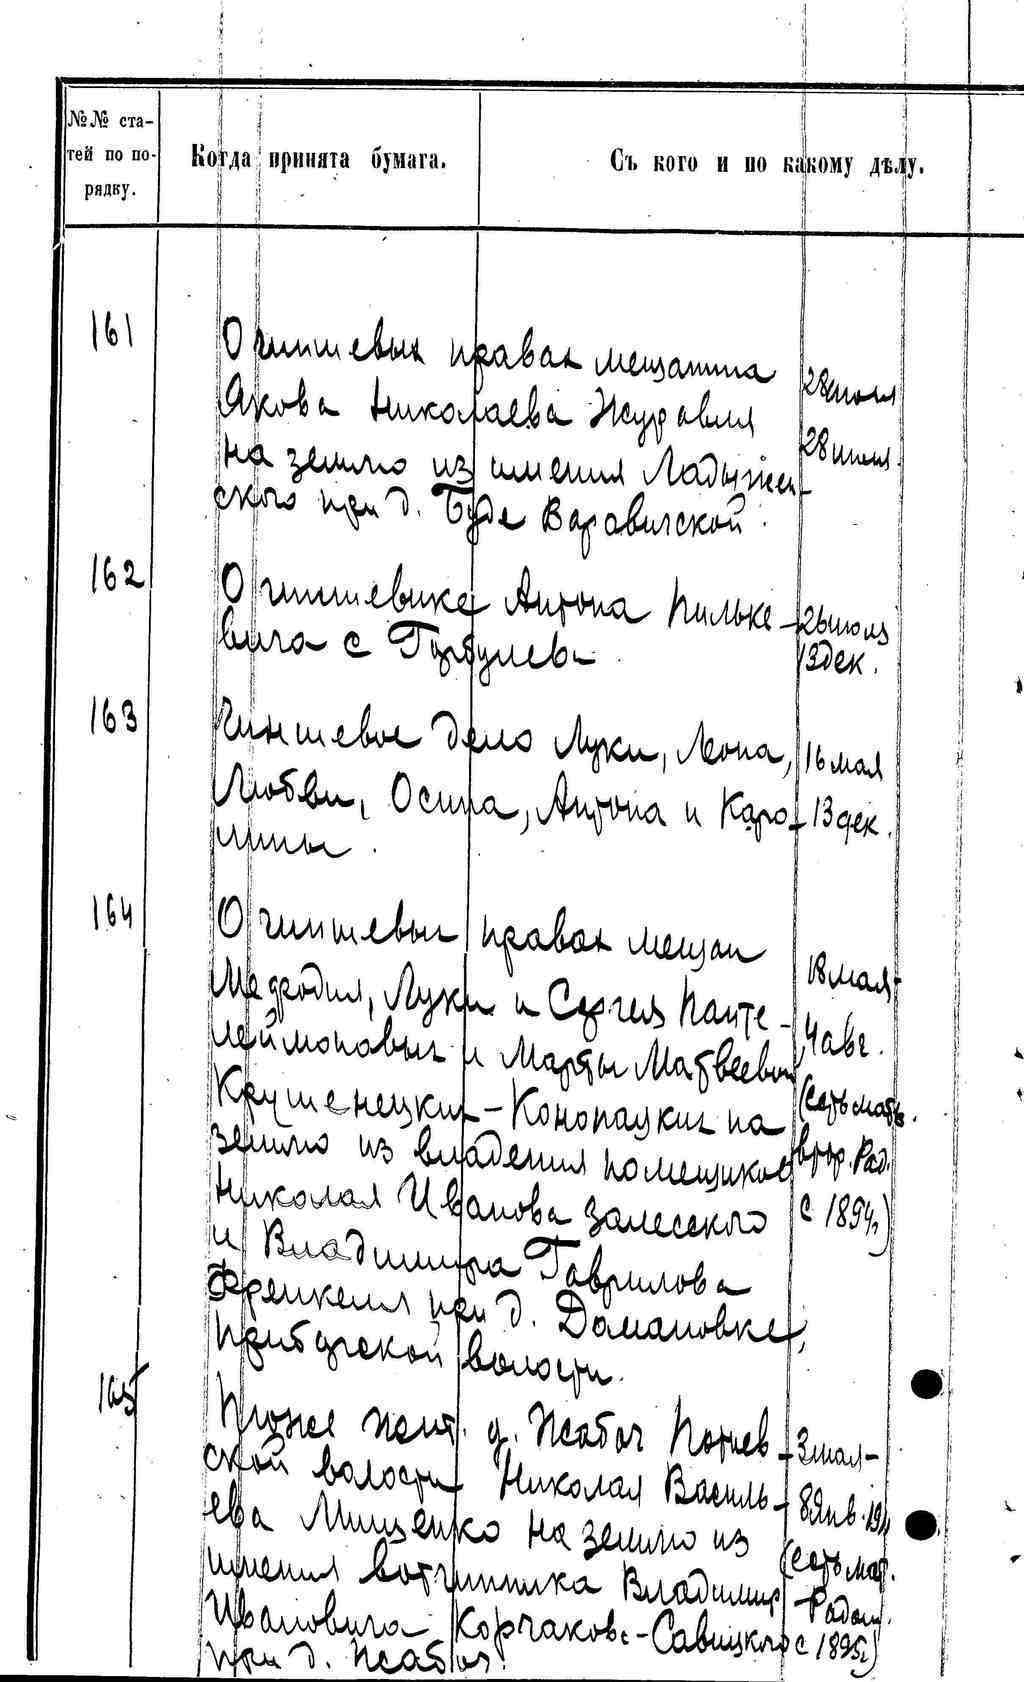 №№ ста-
тей по по-
рядку.
Когда принята бумага.
Съ кого и по какому дѣлу.
161
О чиншевых правах мещанина
Якова Николаева Журавля
на землю из имения Ладыжен-
ского при д. Буде Варавичской.
28 июля
28 июля.
162
О чиншевике Антона Пильке-
вича с Горбулева
26 июля
13 дек.
163
Чиншевое дело Луки, Леона,
Любви, Осипа, Антона и Каро-
лины.
16 мая
13 дек.
164
О чиншевых правах мещан
Мефодия, Луки и Сергея Панте-
леймоновых и Марты Матвеевой
Крушенецких-Конопацких на
землю из владения помещиков
Николая Иванова Залесского
и Владимира Гаврилова
Френкеля при д. Домановке,
Прибурской волости.
18 мая-
4 авг.
(есть матв.
Рад.
с 1894г)
165
Прошен. жит. д. Жабоч Потиев-
ской волости Николая Василь-
ева Мищенко на землю из
имения вотчинника Владимир
Ивановича Корчаково-Савицкого
при д. Жабоч.
3 мая-
8 янв. 1911
(есть мат.
Радом.
с 1895г)